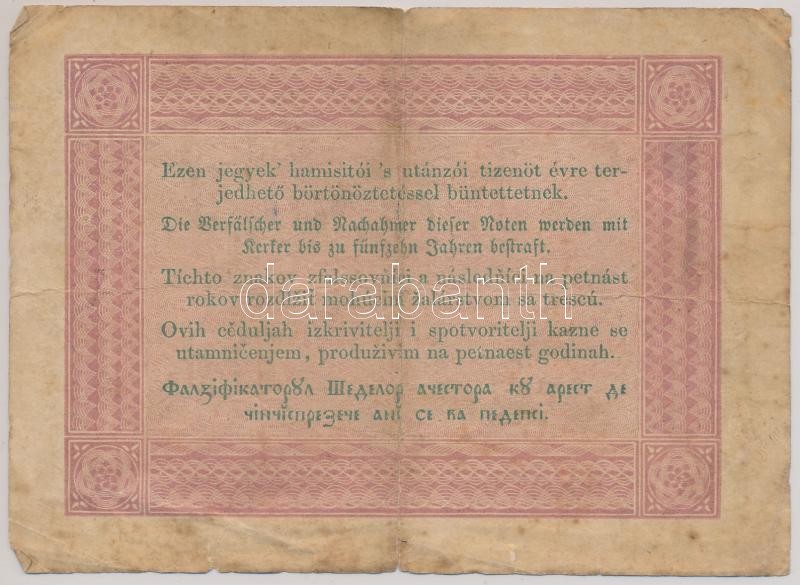 Ezen jegyek' hamisitói 's utánzói tizenöt évre ter-
jedhető börtönöztetéssel büntettetnek.
Die Verfälscher und Nachahmer dieser Noten werden mit
Kerker bis zu fünfzehn Jahren bestraft.
Tíchto znakov a na petnást
rokov žalárstvom sa trescú.
Ovih cěduljah izkrivitelji i spotvoritelji kazne se
utamničenjem, produživim na petnaest godinah.
Фалзіфікаторꙋл Шеделор ачестора кꙋ арест де
чінчіспрезече ані се ва педепсі.
darabanth